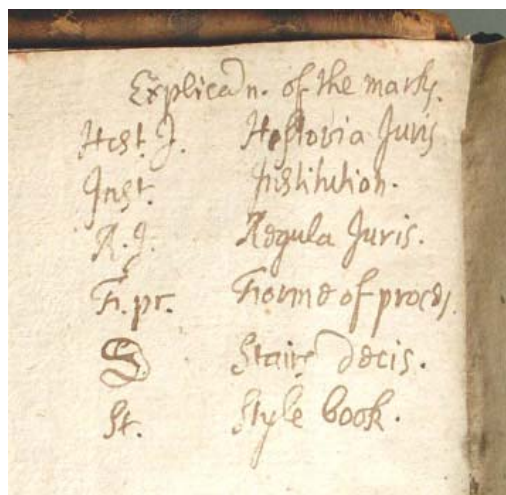 Explica͠n. of the marks.
Hist. J. Historia Juris
Inst. Institution.
R. J. Regula Juris.
F. pr. Forme of proces.
S Stairs decis.
St. Style book.